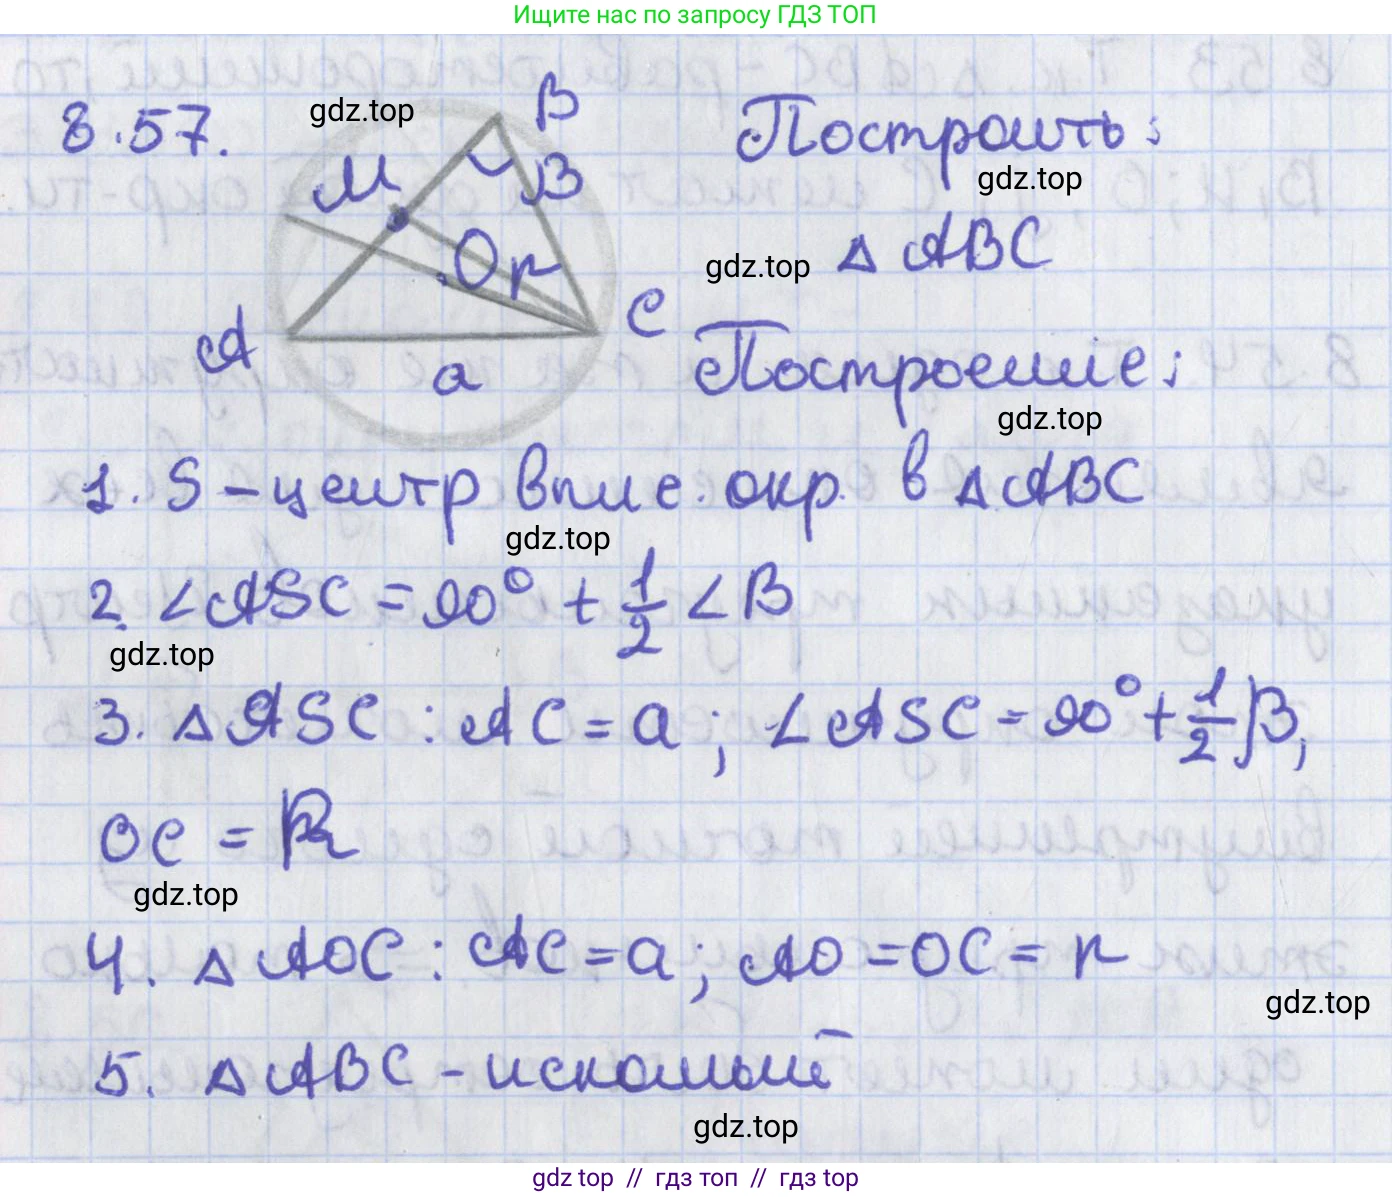 Ищите нас по запросу ГДЗ ТОП
8.57.
gdz.top
B
Построить:
M
β
gdz.top
O
r
gdz.top
△ ABC
A
C
a
Построение:
gdz.top
1. S – центр впис. окр. в △ABC
gdz.top
2. ∠ASC = 90° + 1/2 ∠B
gdz.top
3. △ ASC : AC = a; ∠ASC = 90° + 1/2 β,
OC = R
gdz.top
4. △ AOC : AC = a; AO = OC = r
gdz.top
5. △ ABC – искомый
gdz.top
gdz top // гдз топ // gdz top